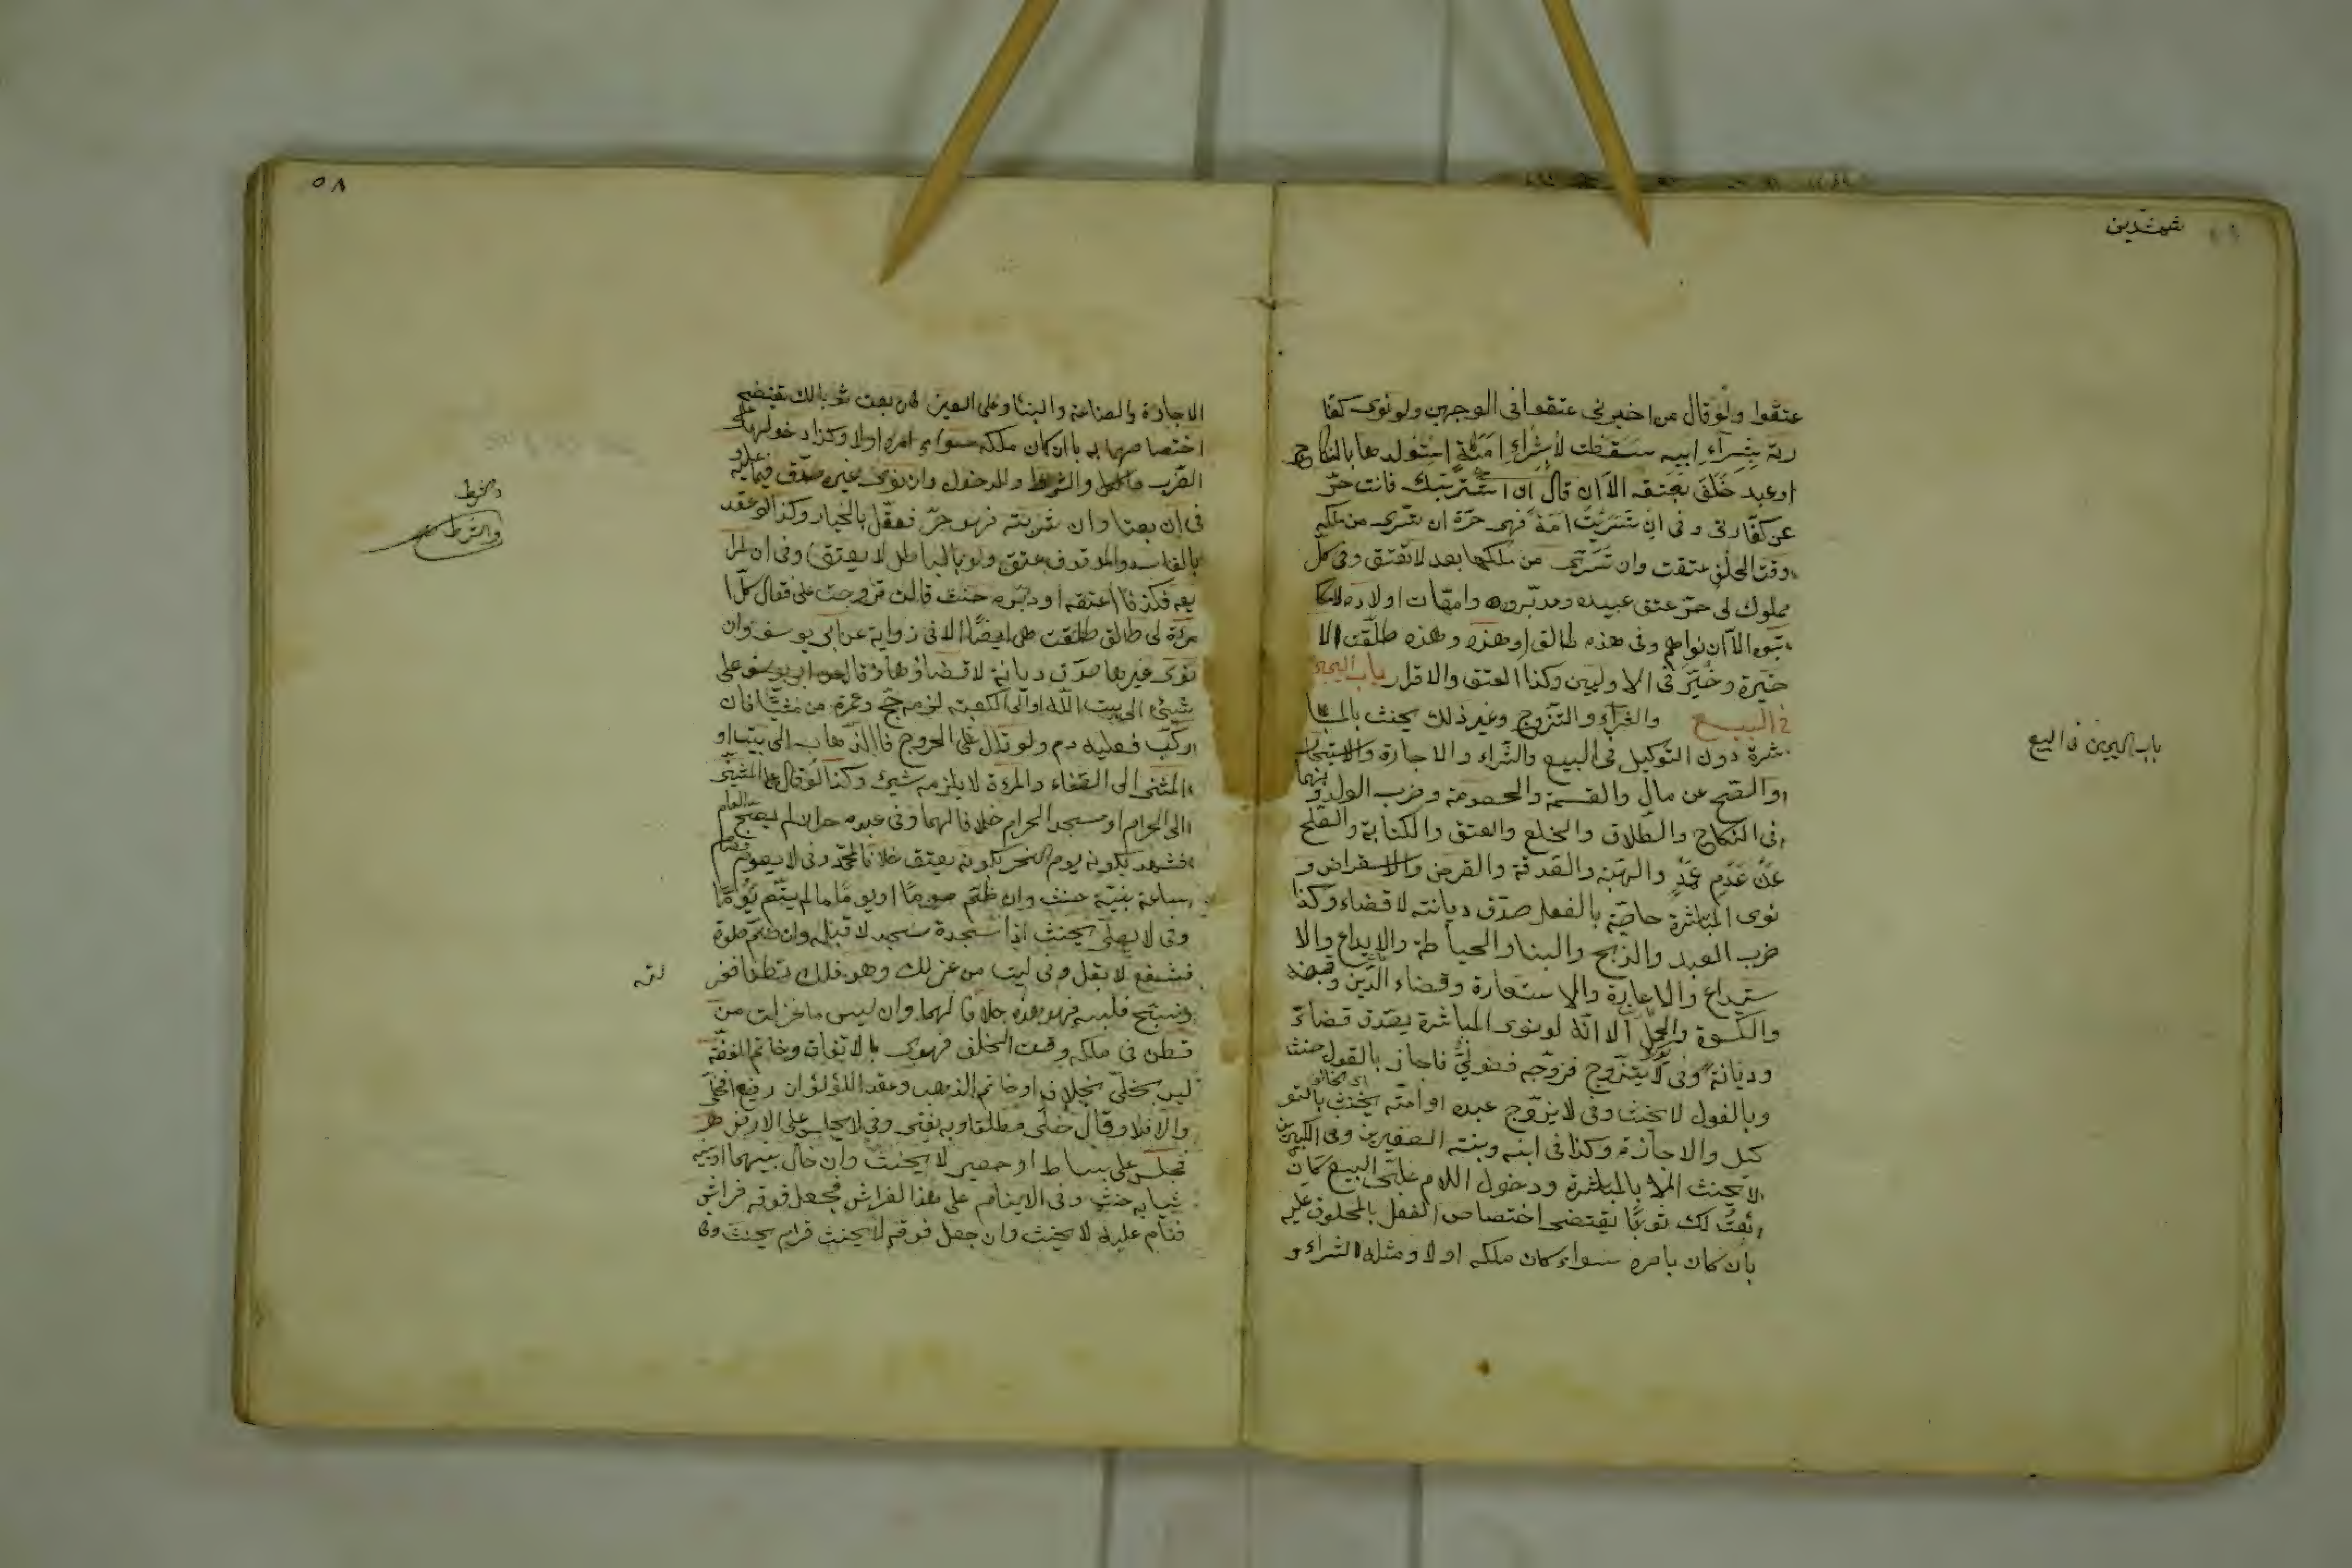 عتقوا ولو قال من اخبرنى عتقوا فى الوجهين ولو نوى كفا
رية بشراء ابيه سقطت لا شراء امة استولدها بالنكاح
او عبد حلف بعتقه الا ان قال ان اشتريتك فانت حر
عن كفارتى وفى ان تسريت امة فهى حرة ان تسرى من ملكه
وقت الحلف عتقت وان تسرى من ملكها بعد لا تعتق وفى كل
مملوك لى حر عتق عبيده ومدبروه وامهات اولاده لا مكا
تبوه الا ان نواهم وفى هذه طالق او هذه وهذه طلقت الا
خيرة وخير فى الاوليين وكذا العتق والاقرار باب اليمين
فى البيع والشراء والتزوج وغير ذلك يحنث بالمبا
شرة دون التوكيل فى البيع والشراء والاجارة والاستيجار
والصلح عن مال والقسمة والخصومة وضرب الولد وبهما
فى النكاح والطلاق والخلع والعتق والكتابة والصلح
عن دم عمد والهبة والصدقة والقرض والاستقراض و
نوى المباشرة خاصة بالفعل صدق ديانة لا قضاء وكذا
ضرب العبد والذبح والبناء والخياطة والايداع والا
ستيداع والاعارة والاستعارة وقضاء الدين وقبضه
والكسوة والحمل الا انه لو نوى المباشرة يصدق قضاء
وديانة وفى لا يتزوج فزوجه فضولى فاجاز بالقول حنث
وبالفعل لا يحنث وفى لا يزوج عبده او امته يحنث بالتو
كيل والاجازة وكذا فى ابنه وبنته الصغيرين وفى الكبيرين
لا يحنث الا بالمباشرة ودخول اللام على البيع كان
بعت لك ثوبا يقتضى اختصاص الفعل بالمحلوف عليه
بان كان بامره سواء كان ملكه او لا ومثله الشراء و
باب اليمين فى البيع
٥٨
الاجارة والصناعة والبناء وعلى العين كان بعت ثوبا لك يقتضى
اختصاصها به بان كان ملكه سواء امره اولا وكذا دخولها على
الضرب والاكل والشرط والدخول وان نوى غيره صدق فيما عليه
فى ان بعته او ان شريته فهو حر فعقد بالخيار وكذا لو عقد
بالفاسد والموقوف عتق ولو بالباطل لا يعتق وفى ان لم ا
بعه فكذا فاعتقه او دبره حنث قالت تزوجت على فقال كل ا
مرأة لى طالق طلقت هى ايضا الا فى رواية عن ابى يوسف وان
نوى غيرها صدق ديانة لا قضاء ومن قال على
شيئ الى بيت الله او الى الكعبة لزمه حج او عمرة من مشيا فان
ركب فعليه دم ولو قال على الخروج او الذهاب الى بيت او
المشى الى الصفاء والمروة لا يلزمه شيئ وكذا لو قال على المشى
الى الحرام او مسجد الحرام خلافا لهما وفى عبده حر ان لم يحج العام
فشهد بكونه يوم النحر بكوفة يعتق خلافا لمحمد وفى لا يصوم فصام
ساعة بنية حنث وان ضم صوما او يوما ما لم يتم يوما
وفى لا يصلى يحنث اذا سجد سجدة لا قبله وان ضم صلوة
فشفع لا بقل وفى لبست من غزلك وهو فملك قطنا فغز
لته
ونسج فلبسه فهو هدى خلافا لهما وان لبس ما غزلت من
قطن فى ملكه وقت الحلف فهدى بالاتفاق وخاتم الفضة
ليس بحلى بخلاف خاتم الذهب وعقد اللؤلؤ ان رصع فحلى
والا فلا وقالا حلى مطلقا وبه يفتى وفى لا يجلس على الارض
فجلس على بساط او حصير لا يحنث وان حال بينهما
ثيابه حنث وفى لا ينام على هذا الفراش فجعل فوقه فراش
فنام عليه لا يحنث وان جعل فوقه قرام يحنث وفى
والشرط